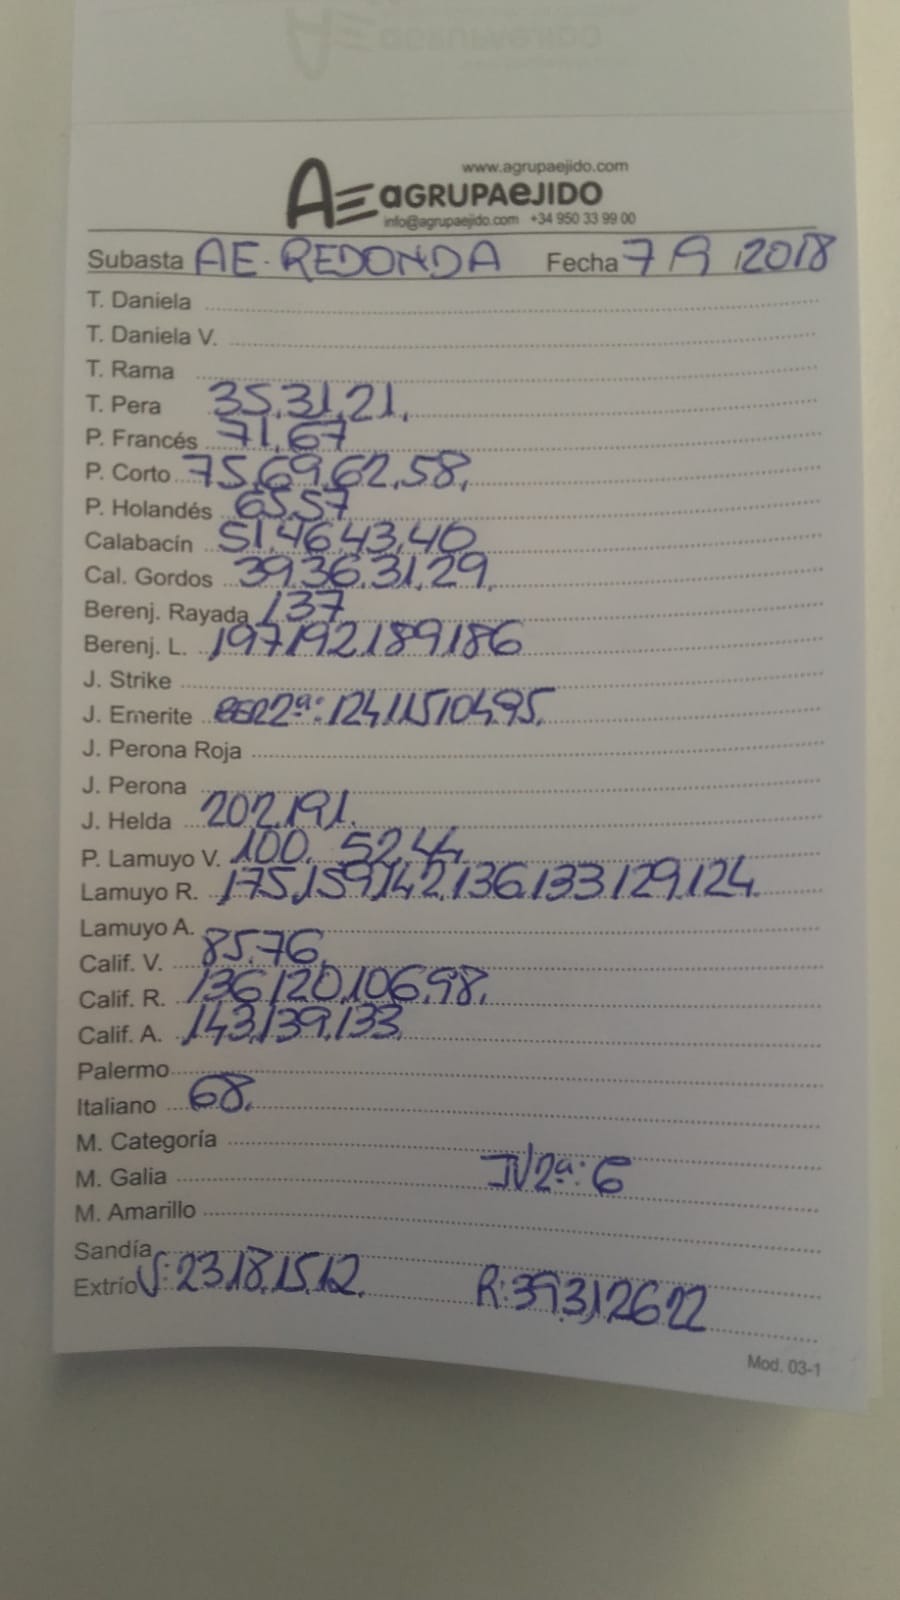 www.agrupaejido.com
AE aGRUPAeJIDO
info@agrupaejido.com +34 950 33 99 00
Subasta AE. REDONDA Fecha 7 / 9 / 2018
T. Daniela
T. Daniela V.
T. Rama
T. Pera 35,31,21,
P. Francés 71,67
P. Corto 75,69,62,58,
P. Holandés 65,57
Calabacín 51,46,43,40
Cal. Gordos 39,36,31,29,
Berenj. Rayada 137
Berenj. L. 197,192,189,186
J. Strike
J. Emerite 2ª: 124,115,104,95,
J. Perona Roja
J. Perona
J. Helda 202,191.
P. Lamuyo V. 100, 52,44,
Lamuyo R. 175,159,142,136,133,129,124.
Lamuyo A.
Calif. V. 85,76,
Calif. R. 136,120,106,98,
Calif. A. 143,139,133,
Palermo
Italiano 68.
M. Categoría
M. Galia JV2ª: 6
M. Amarillo
Sandía
Extrío V: 23,18,15,12. R: 37,31,26,22
Mod. 03-1